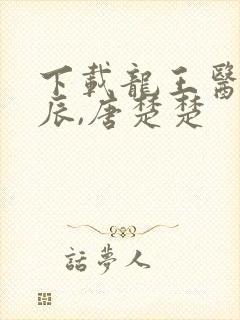 下載龍王醫
辰,唐楚楚
話夢人